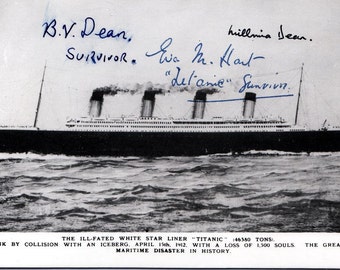 B.V. Dean,
SURVIVOR.
Eva M. Hart
"Titanic" Survivor.
Millvina Dean.
THE ILL-FATED WHITE STAR LINER "TITANIC" (46380 TONS)
NK BY COLLISION WITH AN ICEBERG, APRIL 15th, 1912, WITH A LOSS OF 1,500 SOULS. THE GREA
MARITIME DISASTER IN HISTORY.